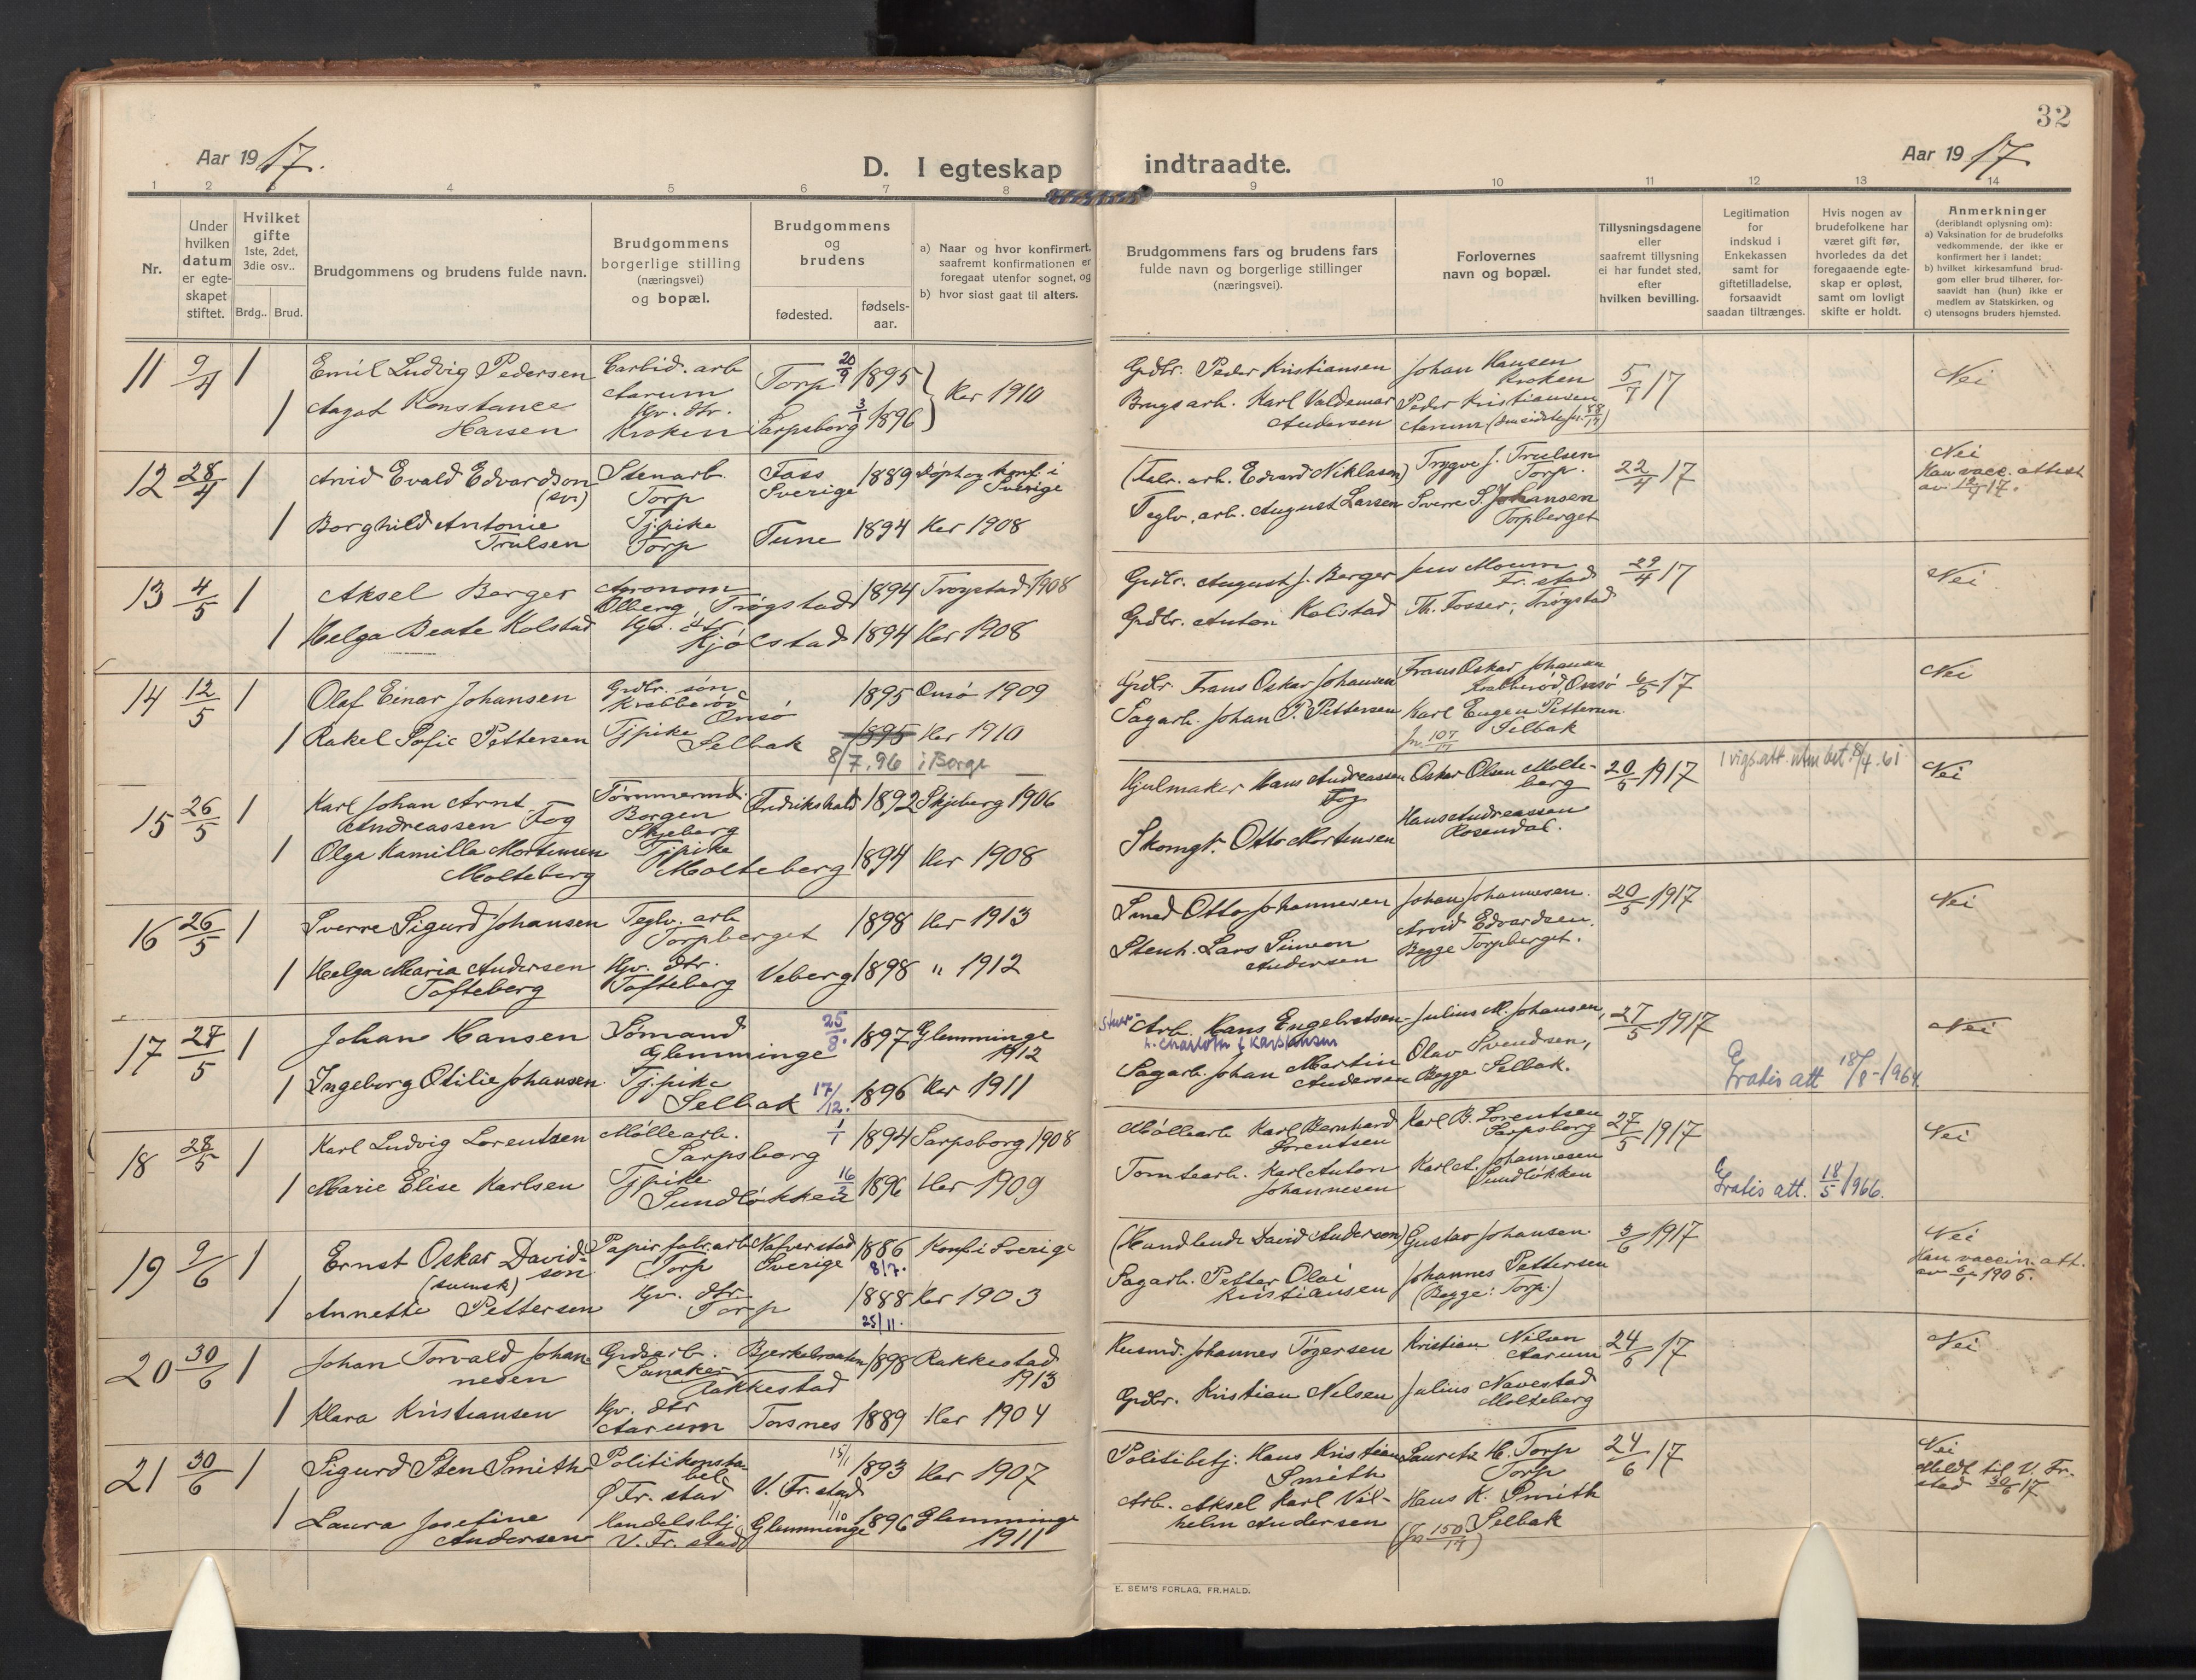 32
Aar 1917.
D. I egteskap indtraadte.
Aar 1917
1 2 3 4 5 6 7 8 9 10 11 12 13 14
Nr.
Under hvilken datum er egte-skapet stiftet.
Hvilket gifte
1ste, 2det, 3die osv..
Brdg.. Brud.
Brudgommens og brudens fulde navn.
Brudgommens borgerlige stilling (næringsvei) og bopæl.
Brudgommens og brudens
fødested.
fødsels-aar.
a) Naar og hvor konfirmert, saafremt konfirmationen er foregaat utenfor sognet, og
b) hvor sidst gaat til alters.
Brudgommens fars og brudens fars fulde navn og borgerlige stillinger (næringsvei).
Forlovernes navn og bopæl.
Tillysningsdagene eller saafremt tillysning ei har fundet sted, efter hvilken bevilling.
Legitimation for indskud i Enkekassen samt for giftetilladelse, forsaavidt saadan tiltrænges.
Hvis nogen av brudefolkene har været gift før, hvorledes da det foregaaende egte-skap er opløst, samt om lovligt skifte er holdt.
Anmerkninger
(deriblandt oplysning om):
a) Vaksination for de brudefolks vedkommende, der ikke er konfirmert her i landet;
b) hvilket kirkesamfund brud-gom eller brud tilhører, for-saavidt han (hun) ikke er medlem av Statskirken, og
c) utensogns bruders hjemsted.
11 9/4 1 Emil Ludvig Pedersen Carbid. arb Aarum Torp 20/9 1895 } Her 1910 Grdbr. Peder Kristiansen Johan Hansen Kroken 5/7 17 Nei
1 Aagot Konstance Hansen Gv. dtr. Kroken Sarpsborg 3/1 1896 Brugsarb. Karl Valdemar Andersen Peder Kristiansen Aarum
12 28/4 1 Arvid Evald Edvardson (sv.) Stenarb. Torp Foss Sverige 1889 Døpt og konf. i Sverige (Fabr. arb. Edvard Niklason) Trygve J. Trulsen Torp. 22/4 17 Nei
Han vacc. attest av 17.
1 Borghild Antonie Trulsen Tjpike Torp Tune 1894 Her 1908 Teglv. arb. August Larsen Sverre S. Johansen Torpberget
13 4/5 1 Aksel Berger Agronom Ølberg, Trøgstad 1894 Trøgstad 1908 Grdbr. August J. Berger Jens Moum Fr. stad 29/4 17 Nei
1 Helga Beate Kolstad Gv. dtr Kjølstad 1894 Her 1908 Grdbr. Anton Kolstad Th. Fosser, Trøgstad
14 12/5 1 Olaf Einar Johansen Grdbr. søn Krabberød Onsø 1895 Onsø 1909 Grdbr Frans Oskar Johansen Frans Oskar Johansen Krabberød, Onsø 6/5 17 Nei
1 Rakel Sofie Pettersen Tjpike Selbak 1895 Her 1910 Sagarb. Johan P. Pettersen Karl Eugen Pettersen Selbak
8/7. 96 i Borge Jn. 107/17
15 26/5 1 Karl Johan Arnt Andreassen Fog Tømmermd. Borgen Skjeberg Fredrikshald 1892 Skjeberg 1906 Hjulmaker Hans Andreassen Fog Oskar Olsen Molteberg 20/5 1917 1 vigs. att. utm bet. 8/4. 61 Nei
1 Olga Kamilla Mortensen Molteberg Tjpike Molteberg 1894 Her 1908 Skomgr. Otto Mortensen Hans Andreassen Rosendal.
16 26/5 1 Sverre Sigurd Johansen Teglv. arb Torpberget 1898 Her 1913 Smed Otto Johannesen Johan Johannesen. 20/5 1917 Nei
1 Helga Maria Andersen Tofteberg Gv. dtr. Tofteberg Veberg 1898 " 1912 Stenh. Lars Simeon Andersen Arvid Edvardsen. Begge Torpberget.
17 27/5 1 Johan Hansen Sømand Glemminge 25/8. 1897 Glemminge 1912 Arb. Hans Engebretsen Julius M. Johansen, 27/5 1917 Nei
1 Ingeborg Otilie Johansen Tjpike Selbak 17/12. 1896 Her 1911 Sagarb. Johan Martin Andersen Olav Svendsen, Begge Selbak. Gratis att 18/8-1964
18 28/5 1 Karl Ludvig Lorentzen Møllearb. Sarpsborg 1/1 1894 Sarpsborg 1908 Møllearb Karl Bernhard Lorentsen Karl B. Lorentsen Sarpsborg 27/5 1917 Nei
1 Marie Elise Karlsen Tjpike Sundløkken 16/2 1896 Her 1909 Tomtearb. Karl Anton Johannesen Karl A. Johannesen Sundløkken Gratis att. 18/5 1966.
19 9/6 1 Ernst Oskar Davidson (svensk) Papirfabr. arb Torp Nafverstad Sverige 1886 8/7. Konf i Sverige (Handlende David Anderson) Gustav Johansen. 3/6 1917 Nei
Han vaccin. att. av 5/1 1905.
1 Annette Pettersen Gv. dtr. Torp 1888 25/11. Her 1903 Sagarb. Petter Olai Kristiansen Johannes Pettersen (Begge: Torp.)
20 30/6 1 Johan Torvald Johannesen Grdsarb. Sanaker Bjerkebraaten Rakkestad 1898 Rakkestad 1913 Husmd. Johannes Tøgersen Kristian Nilsen Aarum 24/6 17 Nei
1 Klara Kristiansen Gv. dtr Aarum Torsnes 1889 Her 1904 Grdbr. Kristian Nelsen Julius Navestad Molteberg
21 30/6 1 Sigurd Sten Smith Politikonstabel Ø Fr. stad V. Fr. stad 15/1 1893 Her 1907 Politibetj. Hans Kristian Smith Lauritz H. Torp Torp 24/6 17 Nei
Meldt til V. Fr. stad 30/6 17
1 Laura Josefine Andersen Handelsbetj. V. Fr. stad Glemminge 1/10 1896 Glemminge 1911 Arb. Aksel Karl Vilhelm Andersen Hans K. Smith Selbak
(Jn. 150/17)
E. SEM'S FORLAG, FR.HALD.